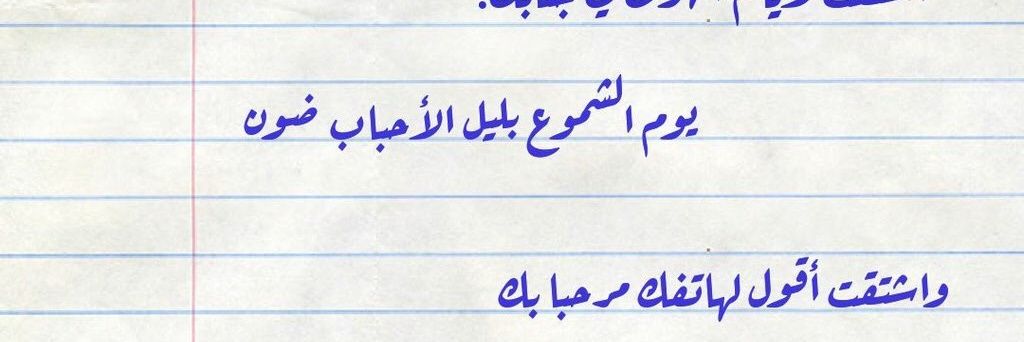 يوم الشموع بليل الأحباب ضون
واشتقت أقول لهاتفك مرحبا بك